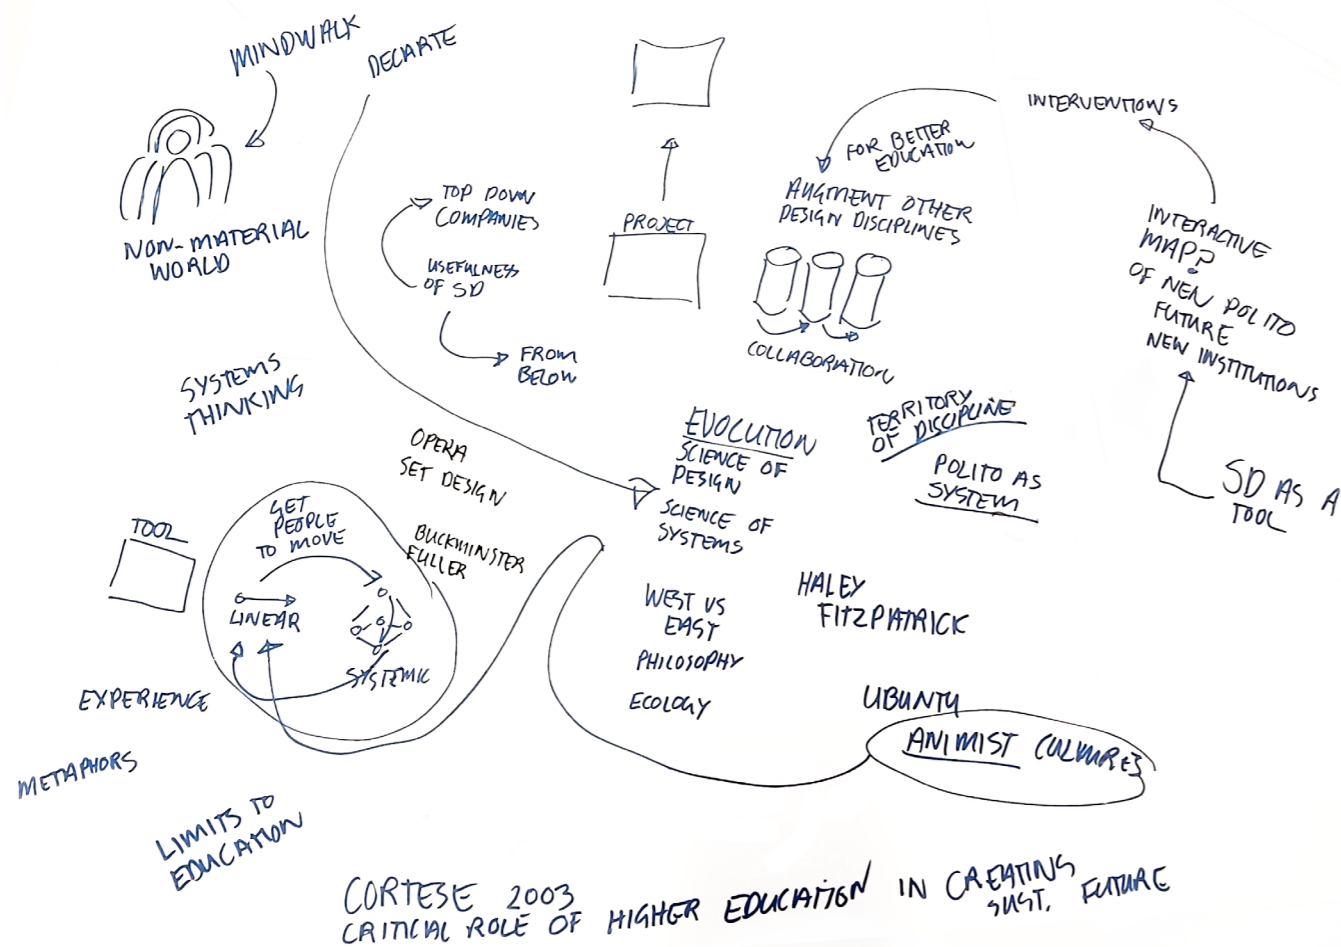 MINDWALK
DECARTE
NON-MATERIAL
WORLD
TOP DOWN
COMPANIES
USEFULNESS
OF SD
FROM
BELOW
PROJECT
INTERVENTIONS
FOR BETTER
EDUCATION
AUGMENT OTHER
DESIGN DISCIPLINES
COLLABORATION
INTERACTIVE
MAP?
OF NEN POLITO
FUTURE
NEW INSTITUTIONS
SD AS A
TOOL
SYSTEMS
THINKING
OPERA
SET DESIGN
BUCKMINSTER
FULLER
EVOLUTION
SCIENCE OF
DESIGN
SCIENCE OF
SYSTEMS
TERRITORY
OF DISCIPLINE
POLITO AS
SYSTEM
TOOL
GET
PEOPLE
TO MOVE
LINEAR
SYSTEMIC
WEST VS
EAST
PHILOSOPHY
ECOLOGY
HALEY
FITZPATRICK
UBUNTU
ANIMIST CULTURES
EXPERIENCE
METAPHORS
LIMITS TO
EDUCATION
CORTESE 2003
CRITICAL ROLE OF HIGHER EDUCATION IN CREATING
SUST. FUTURE